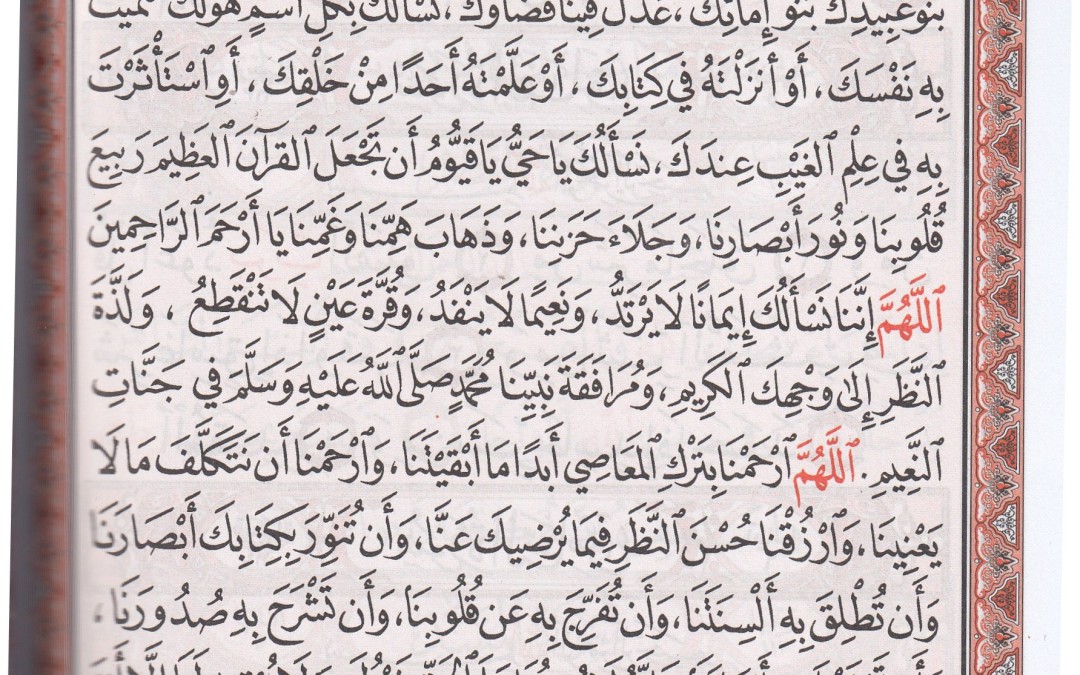 بَنُو عَبِيدِكَ بَنُو إِمَائِكَ، عَدْلٌ فِينَا قَضَاؤُكَ، نَسْأَلُكَ بِكُلِّ ٱسْمٍ هُوَ لَكَ سَمَّيْتَ
بِهِ نَفْسَكَ، أَوْ أَنزَلْتَهُ فِي كِتَابِكَ، أَوْ عَلَّمْتَهُ أَحَدًا مِنْ خَلْقِكَ، أَوِ ٱسْتَأْثَرْتَ
بِهِ فِي عِلْمِ ٱلْغَيْبِ عِندَكَ، نَسْأَلُكَ يَا حَيُّ يَا قَيُّومُ أَن تَجْعَلَ ٱلْقُرْآنَ ٱلْعَظِيمَ رَبِيعَ
قُلُوبِنَا وَنُورَ أَبْصَارِنَا، وَجَلَاءَ حَزَنِنَا، وَذَهَابَ هَمِّنَا وَغَمِّنَا يَا أَرْحَمَ ٱلرَّاحِمِينَ
ٱللَّهُمَّ إِنَّنَا نَسْأَلُكَ إِيمَانًا لَا يَرْتَدُّ، وَنَعِيمًا لَا يَنْفَدُ، وَقُرَّةَ عَيْنٍ لَا تَنْقَطِعُ، وَلَذَّةَ
ٱلنَّظَرِ إِلَىٰ وَجْهِكَ ٱلْكَرِيمِ، وَمُرَافَقَةَ نَبِيِّنَا مُحَمَّدٍ صَلَّى ٱللَّهُ عَلَيْهِ وَسَلَّمَ فِي جَنَّاتِ
ٱلنَّعِيمِ. ٱللَّهُمَّ ٱرْحَمْنَا بِتَرْكِ ٱلْمَعَاصِي أَبَدًا مَا أَبْقَيْتَنَا، وَٱرْحَمْنَا أَن نَتَكَلَّفَ مَا لَا
يَعْنِينَا، وَٱرْزُقْنَا حُسْنَ ٱلنَّظَرِ فِيمَا يُرْضِيكَ عَنَّا، وَأَن تُنَوِّرَ بِكِتَابِكَ أَبْصَارَنَا
وَأَن تُطْلِقَ بِهِ أَلْسِنَتَنَا، وَأَن تُفَرِّجَ بِهِ عَن قُلُوبِنَا، وَأَن تَشْرَحَ بِهِ صُدُورَنَا،